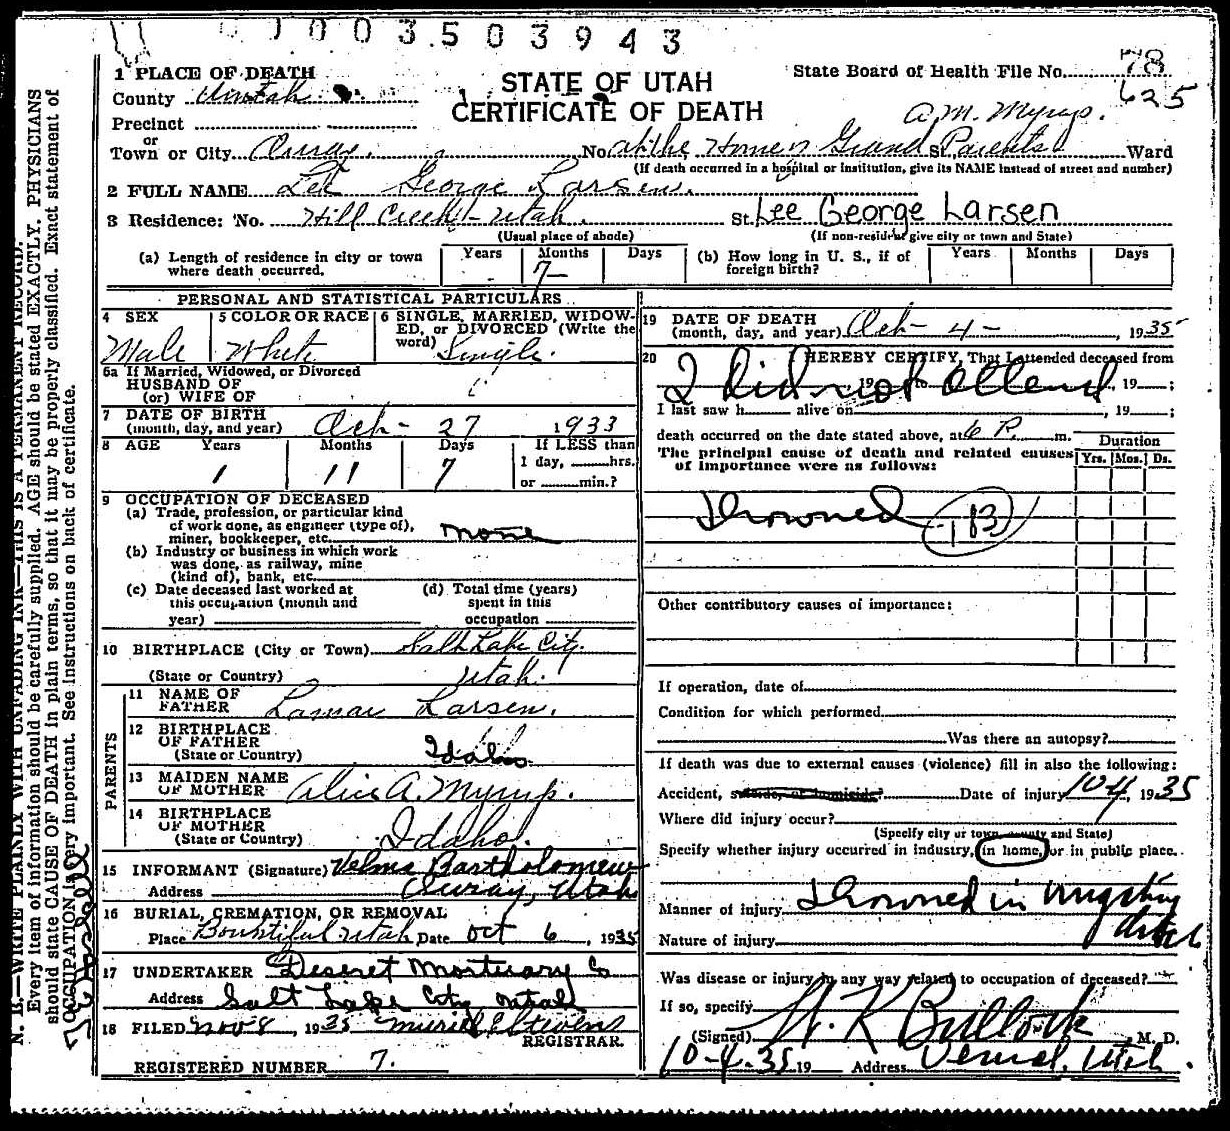 003503943
78
625
1 PLACE OF DEATH
County Uintah
STATE OF UTAH
CERTIFICATE OF DEATH
State Board of Health File No.
A.M. Myrup.
Precinct
or
Town or City Ouray. No. at the Home of Grand St. Parents Ward
(If death occurred in a hospital or institution, give its NAME instead of street and number)
2 FULL NAME Lee George Larsen.
3 Residence: No. Hill Creek - Utah. St. Lee George Larsen
(Usual place of abode) (If non-resident give city or town and State)
(a) Length of residence in city or town where death occurred. Years Months 7 Days
(b) How long in U. S., if of foreign birth? Years Months Days
PERSONAL AND STATISTICAL PARTICULARS
4 SEX Male
5 COLOR OR RACE White
6 SINGLE, MARRIED, WIDOWED, or DIVORCED (Write the word) Single.
6a If Married, Widowed, or Divorced
HUSBAND OF
(or) WIFE OF
7 DATE OF BIRTH
(month, day, and year) Oct - 27 1933
8 AGE Years 1 Months 11 Days 7 If LESS than
1 day, hrs.
or min.?
9 OCCUPATION OF DECEASED
(a) Trade, profession, or particular kind
of work done, as engineer (type of),
miner, bookkeeper, etc. none
(b) Industry or business in which work
was done, as railway, mine
(kind of), bank, etc.
(c) Date deceased last worked at
this occupation (month and
year)
(d) Total time (years)
spent in this
occupation
10 BIRTHPLACE (City or Town) Salt Lake City.
(State or Country) Utah.
PARENTS
11 NAME OF
FATHER Lamar Larsen.
12 BIRTHPLACE
OF FATHER
(State or Country) Idaho
13 MAIDEN NAME
OF MOTHER Alice A. Myrup.
14 BIRTHPLACE
OF MOTHER
(State or Country) Idaho.
15 INFORMANT (Signature) Velma Bartholomew
Address Ouray, Utah
16 BURIAL, CREMATION, OR REMOVAL
Place Bountiful Utah Date Oct 6, 1935
17 UNDERTAKER Deseret Mortuary Co
Address Salt Lake City, Utah
18 FILED Nov 8, 1935 Muriel E Stevens
REGISTRAR.
REGISTERED NUMBER 7.
19 DATE OF DEATH
(month, day, and year) Oct - 4 - , 1935
20 I HEREBY CERTIFY, That I attended deceased from
I did not attend
, 19 to , 19 ;
I last saw h alive on , 19 ;
death occurred on the date stated above, at 6 P. m.
The principal cause of death and related causes
of importance were as follows:
Duration
Yrs. Mos. Ds.
Drowned 183
Other contributory causes of importance:
If operation, date of
Condition for which performed
Was there an autopsy?
If death was due to external causes (violence) fill in also the following:
Accident, suicide, or homicide? Date of injury 10 4, 1935
Where did injury occur?
(Specify city or town, county and State)
Specify whether injury occurred in industry, in home, or in public place.
Manner of injury Drowned in irrigating
ditch
Nature of injury
Was disease or injury in any way related to occupation of deceased?
If so, specify
(Signed) Bullock, M. D.
10-4-35 19 Address Vernal, Utah
N. B.—WRITE PLAINLY WITH UNFADING INK—THIS IS A PERMANENT RECORD.
Every item of information should be carefully supplied. AGE should be stated EXACTLY. PHYSICIANS
should state CAUSE OF DEATH in plain terms, so that it may be properly classified. Exact statement of
OCCUPATION is very important. See instructions on back of certificate.